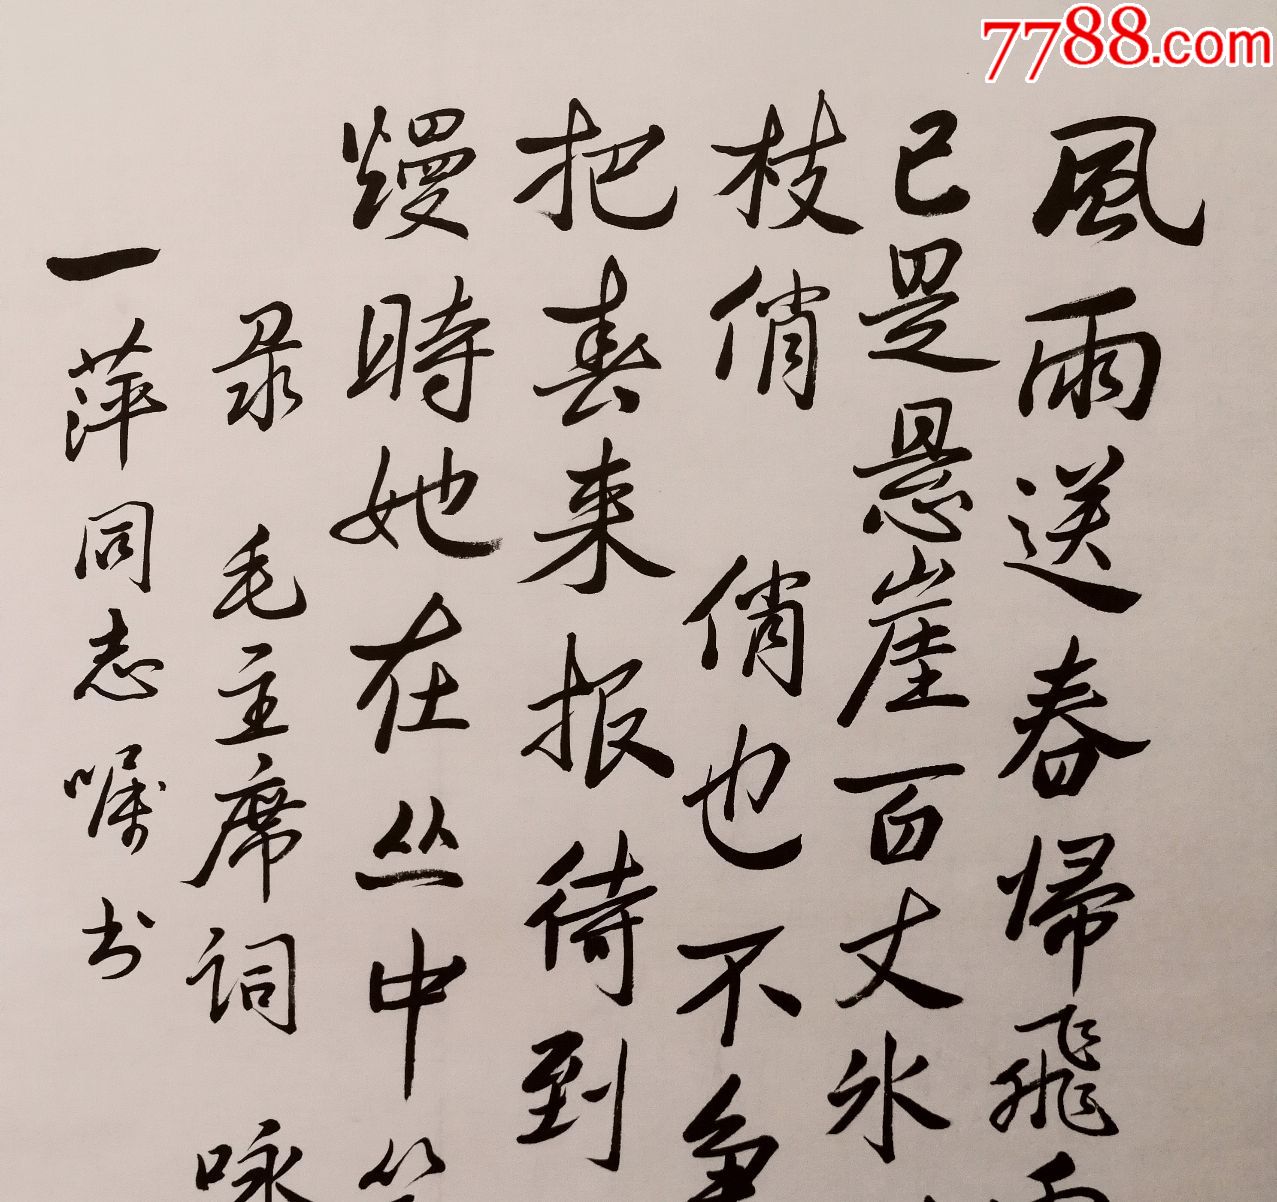 7788.com
風雨送春歸飛
已是悬崖百丈冰
枝俏 俏也不争
把春来报待到
熳時她在丛中
录 毛主席词 咏
一萍同志嘱书